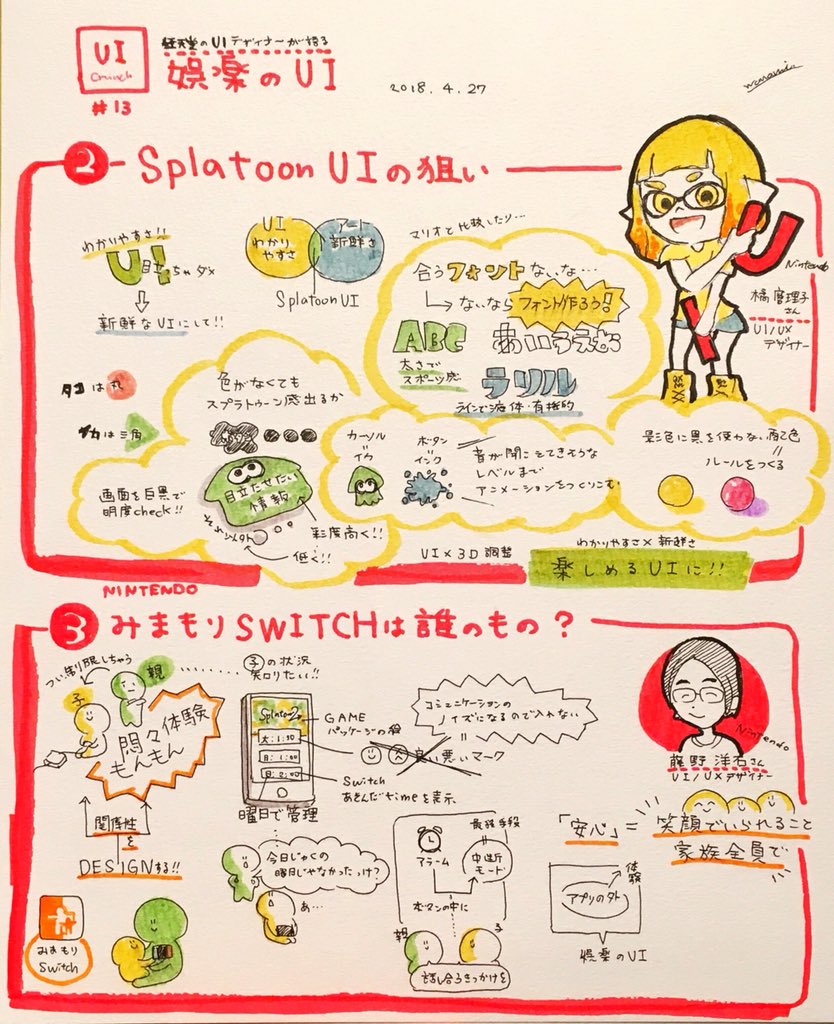 UI
Crunch
#13
任天堂のUIデザイナーが語る
娯楽のUI
2018.4.27
2 Splatoon UIの狙い
わかりやすさ!!
UI
目立ちゃダメ
新鮮なUIにして!!
UI
わかり
やすさ
アート
新鮮さ
Splatoon UI
マリオと比較したり…
合うフォントないな…
ないならフォント作ろう!
ABC
あいうえお
太さで
スポーツ感
ラリル
ラインで液体・有機的
Nintendo
さん
UI/UX
デザイナー
タコは丸
イカは三角
色がなくても
スプラトゥーン感出るか
画面を白黒で
明度check!!
目立たせたい
情報
それ以外
彩度高く!!
低く!!
カーソル
イカ
ボタン
インク
音が聞こえてきそうな
レベルまで
アニメーションをつくりこむ
影色に黒を使わない配色
ルールをつくる
UI×3D調整
わかりやすさ×新鮮さ
楽しめるUIに!!
NINTENDO
3 みまもりSWITCHは誰のもの?
つい制限しちゃう
子
親
悶々体験
もんもん
関係性
を
DESIGNする!!
みまもり
Switch
子の状況
知りたい!!
Splatoon2
木:1:30
日:1:00
日:2:00
GAME
パッケージの絵
良い悪いマーク
コミュニケーションの
ノイズになるので入れない
Switch
あそんだtimeを表示
曜日で管理
今日じゃくの
曜日じゃなかったっけ?
あ…
最強手段
アラーム
中断
モード
ボタンの中に
親
子
話し合うきっかけを
Nintendo
さん
UI/UXデザイナー
「安心」=笑顔でいられること
家族全員で
体験
アプリの外
娯楽のUI